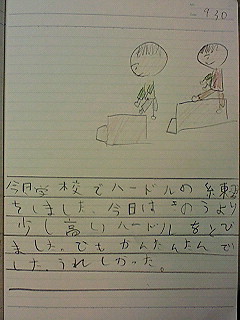 930
今日学校でハードルの練習
をしました。今日はきのうより
少し高いハードルをとび
ました。でもかんたんたんで
した。うれしかった。